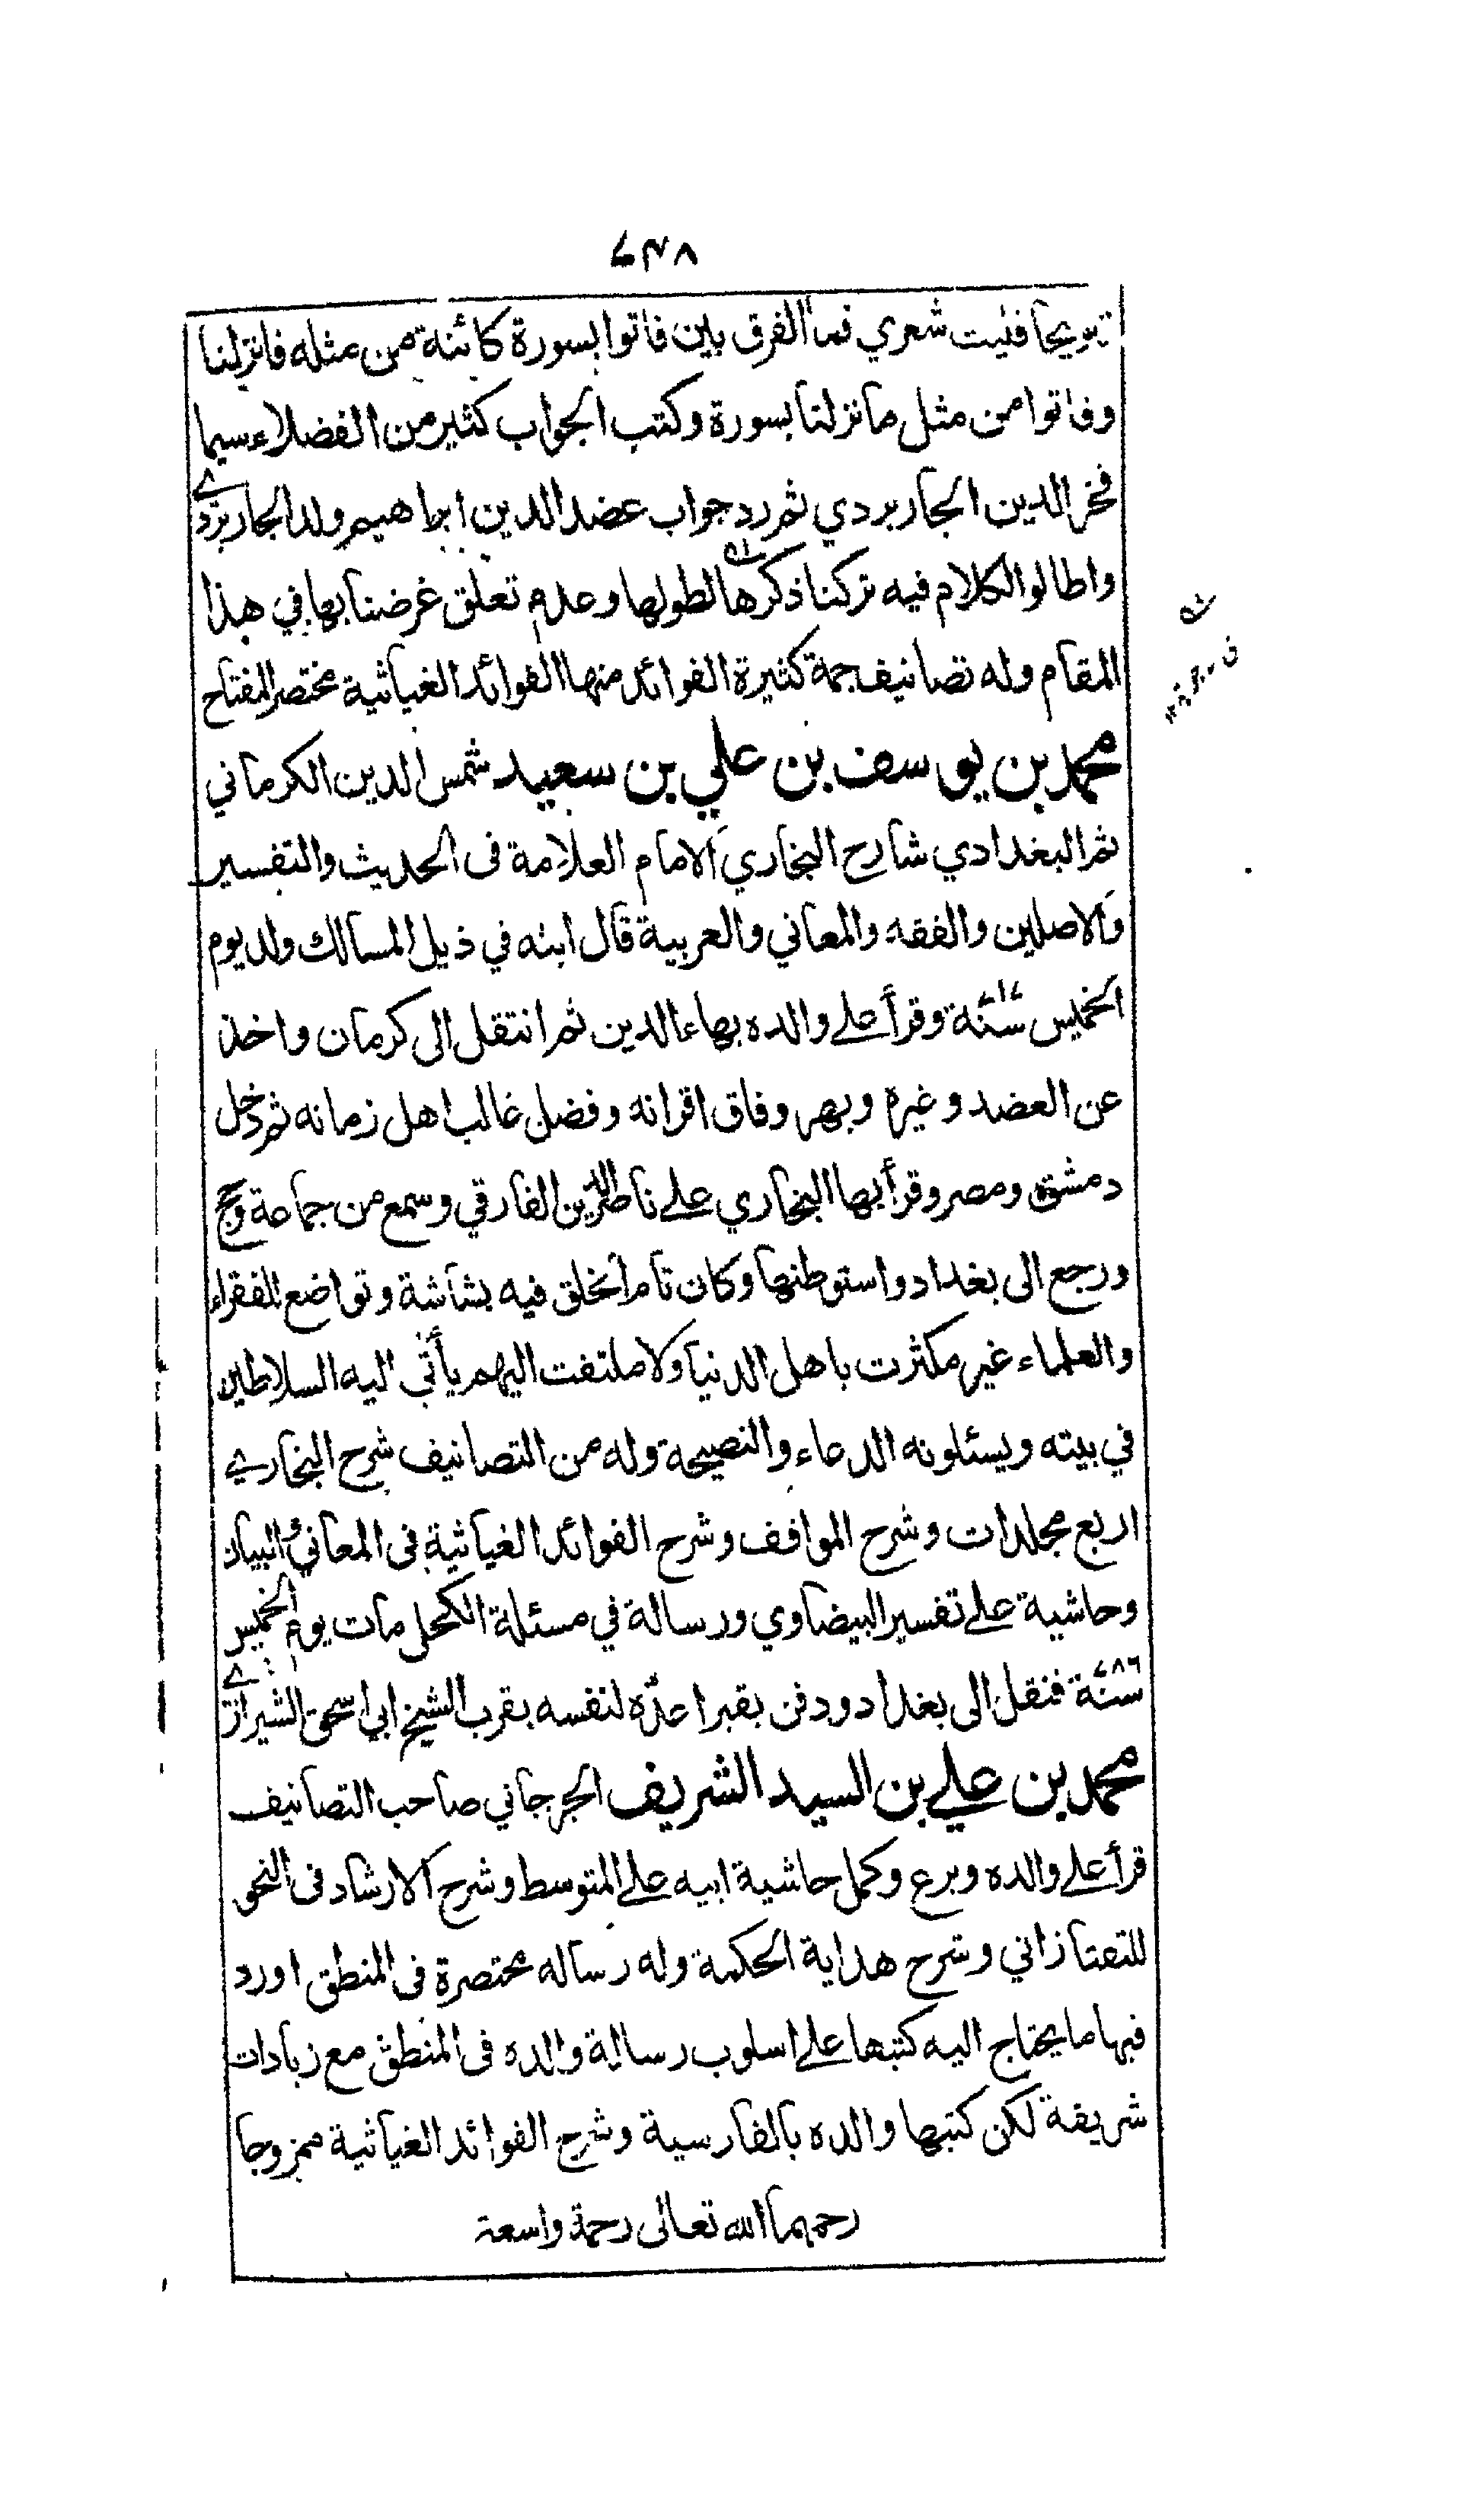 ٧٣٨
تهويجا فليت شعري فما الفرق بين فاتوا بسورة كائنة من مثله فانزلنا
وفاتوا من مثل ما نزلنا بسورة وكتب الجواب كثير من الفضلاء سيما
فخر الدين الجاربردي ثم رد جواب عضد الدين ابراهيم ولد الجاربردي
واطالوا الكلام فيه تركنا ذكرها لطولها وعدم تعلق غرضنا بها في هذا
المقام وله تصانيف جمة كثيرة الفوائد منها الفوائد الغياثية مختصر المفتاح
محمد بن يوسف بن علي بن سعيد شمس الدين الكرماني
ثم البغدادي شارح البخاري الامام العلامة فى الحديث والتفسير
والاصلين والفقه والمعاني والعربية قال ابنه في ذيل المسالك ولد يوم
الخميس سنة ٧١٧ وقرأ علے والده بهاء الدين ثم انتقل الى كرمان واخذ
عن العضد وغيره وبهر وفاق اقرانه وفضل غالب اهل زمانه ثم دخل
دمشق ومصر وقرأ بها البخاري علے ناصر الدين الفارقي وسمع من جماعة وحج
ورجع الى بغداد واستوطنها وكان تام الخلق فيه بشاشة وتواضع للفقراء
والعلماء غير مكترث باهل الدنيا ولا ملتفت اليهم يأتي اليه السلاطين
في بيته ويسئلونه الدعاء والنصيحة وله من التصانيف شرح البخارے
اربع مجلدات وشرح المواقف وشرح الفوائد الغياثية فى المعاني والبيان
وحاشية علے تفسير البيضاوي ورسالة في مسئلة الكحل مات يوم الخميس
سنة ٧٨٦ فنقل الى بغداد ودفن بقبر اعده لنفسه بقرب الشيخ ابي اسحق الشيرازے
محمد بن علے بن السيد الشريف الجرجاني صاحب التصانيف
قرأ علے والده وبرع وكمل حاشية ابيه علے المتوسط وشرح الارشاد فى النحو
للتفتازاني وشرح هداية الحكمة وله رساله مختصرة فى المنطق اورد
فيها ما يحتاج اليه كتبها علے اسلوب رسالة والده فى المنطق مع زيادات
شريفة لكن كتبها والده بالفارسية وشرح الفوائد الغياثية ممزوجا
رحمهما الله تعالى رحمة واسعة